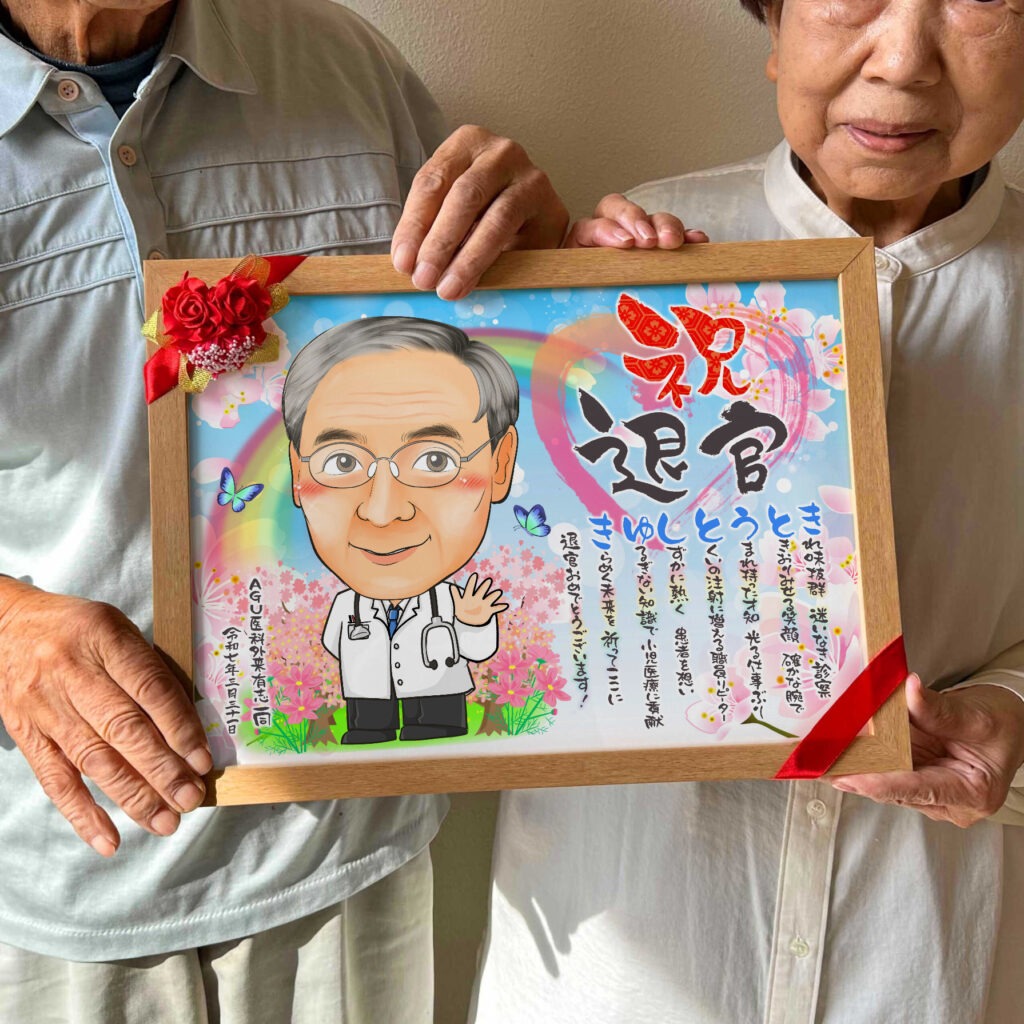 祝
退官
きれ味抜群 迷いなき診察
ときおりみせる笑顔 確かな腕で
うまれ持った才知 光る仕事ぶり
とくいの注射に増える職員リピーター
しずかに熱く 患者を想い
ゆるぎない知識で 小児医療に貢献
きらめく未来を 祈ってここに
退官おめでとうございます！
AGU医科外来有志一同
令和七年三月三十一日